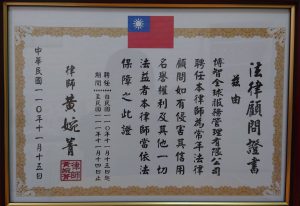 法律顧問證書
茲由
博智全球服務管理有限公司
聘任本律師為常年法律
顧問如有侵害其信用
名譽權利及其他一切
法益者本律師當依法
保障之此證
聘任期間
自民國一一〇年十一月十五日起
至民國一一一年十一月十四日止
律師 黃婉菁
律師黃婉菁
中華民國一一〇年十一月十五日